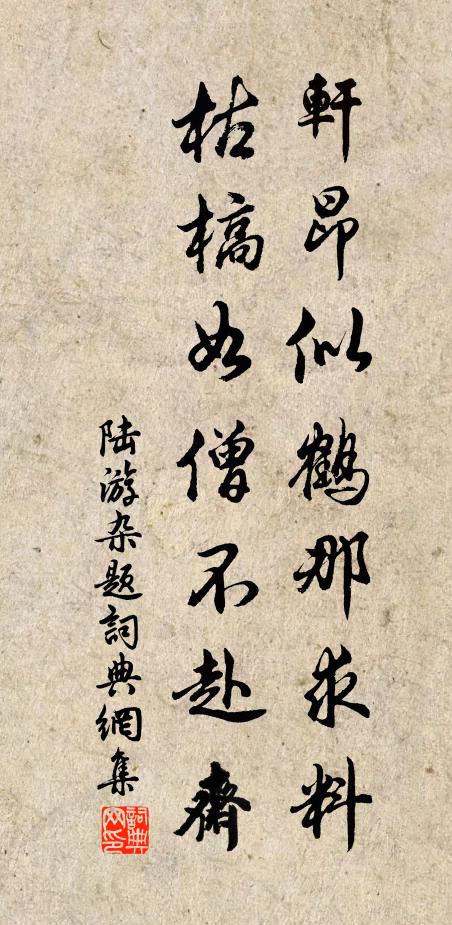 軒昂似鶴那求料
枯槁如僧不赴齋
陆游杂题詞典網集
詞典網印